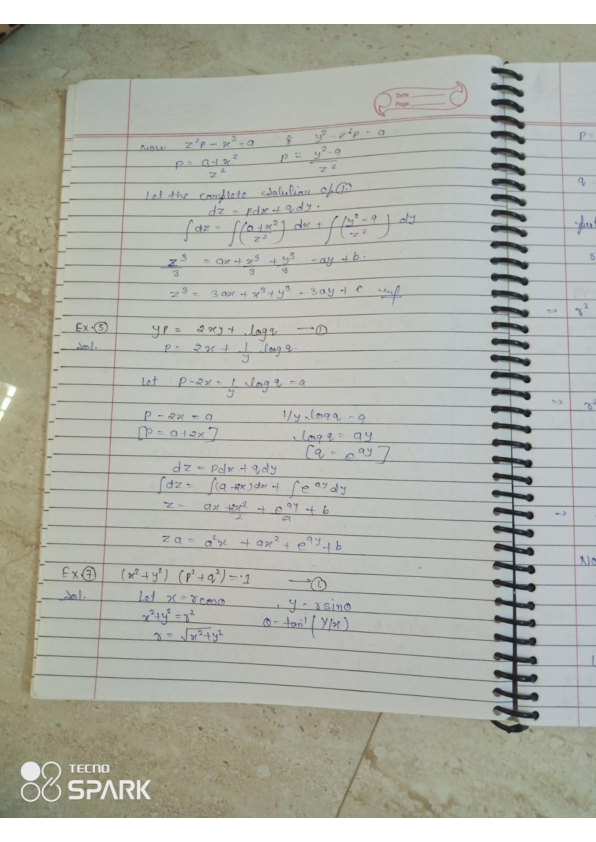 Date
Page
Now z²p - x² = a & y² - z²q = a
p = a+x²/z² p = y²-a/z²
Let the complete solution of ①:
dz = pdx + qdy.
∫dz = ∫(a+x²/z²) dx + ∫(y²-a/z²) dy
z³/3 = ax + x³/3 + y³/3 - ay + b.
z³ = 3ax + x³ + y³ - 3ay + c
Ex-⑤ yp = 2xy + logq —①
Sol. p = 2x + 1/y logq
Let p-2x = 1/y logq = a
p - 2x = a 1/y logq = a
[p = a+2x] logq = ay
[q = e^ay]
dz = pdx + qdy
∫dz = ∫(a+2x)dx + ∫e^ay dy
z = ax + 2x²/2 + e^ay/a + b
za = a²x + ax² + e^ay + b
Ex-⑦ (x²+y²) (p²+q²) = 1 —①
Sol. Let x = rcosθ , y = rsinθ
x²+y² = r² θ = tan⁻¹(y/x)
r = √x²+y²
p =
q =
⇒ r²
⇒ r²
⇒
Now
TECNO
SPARK